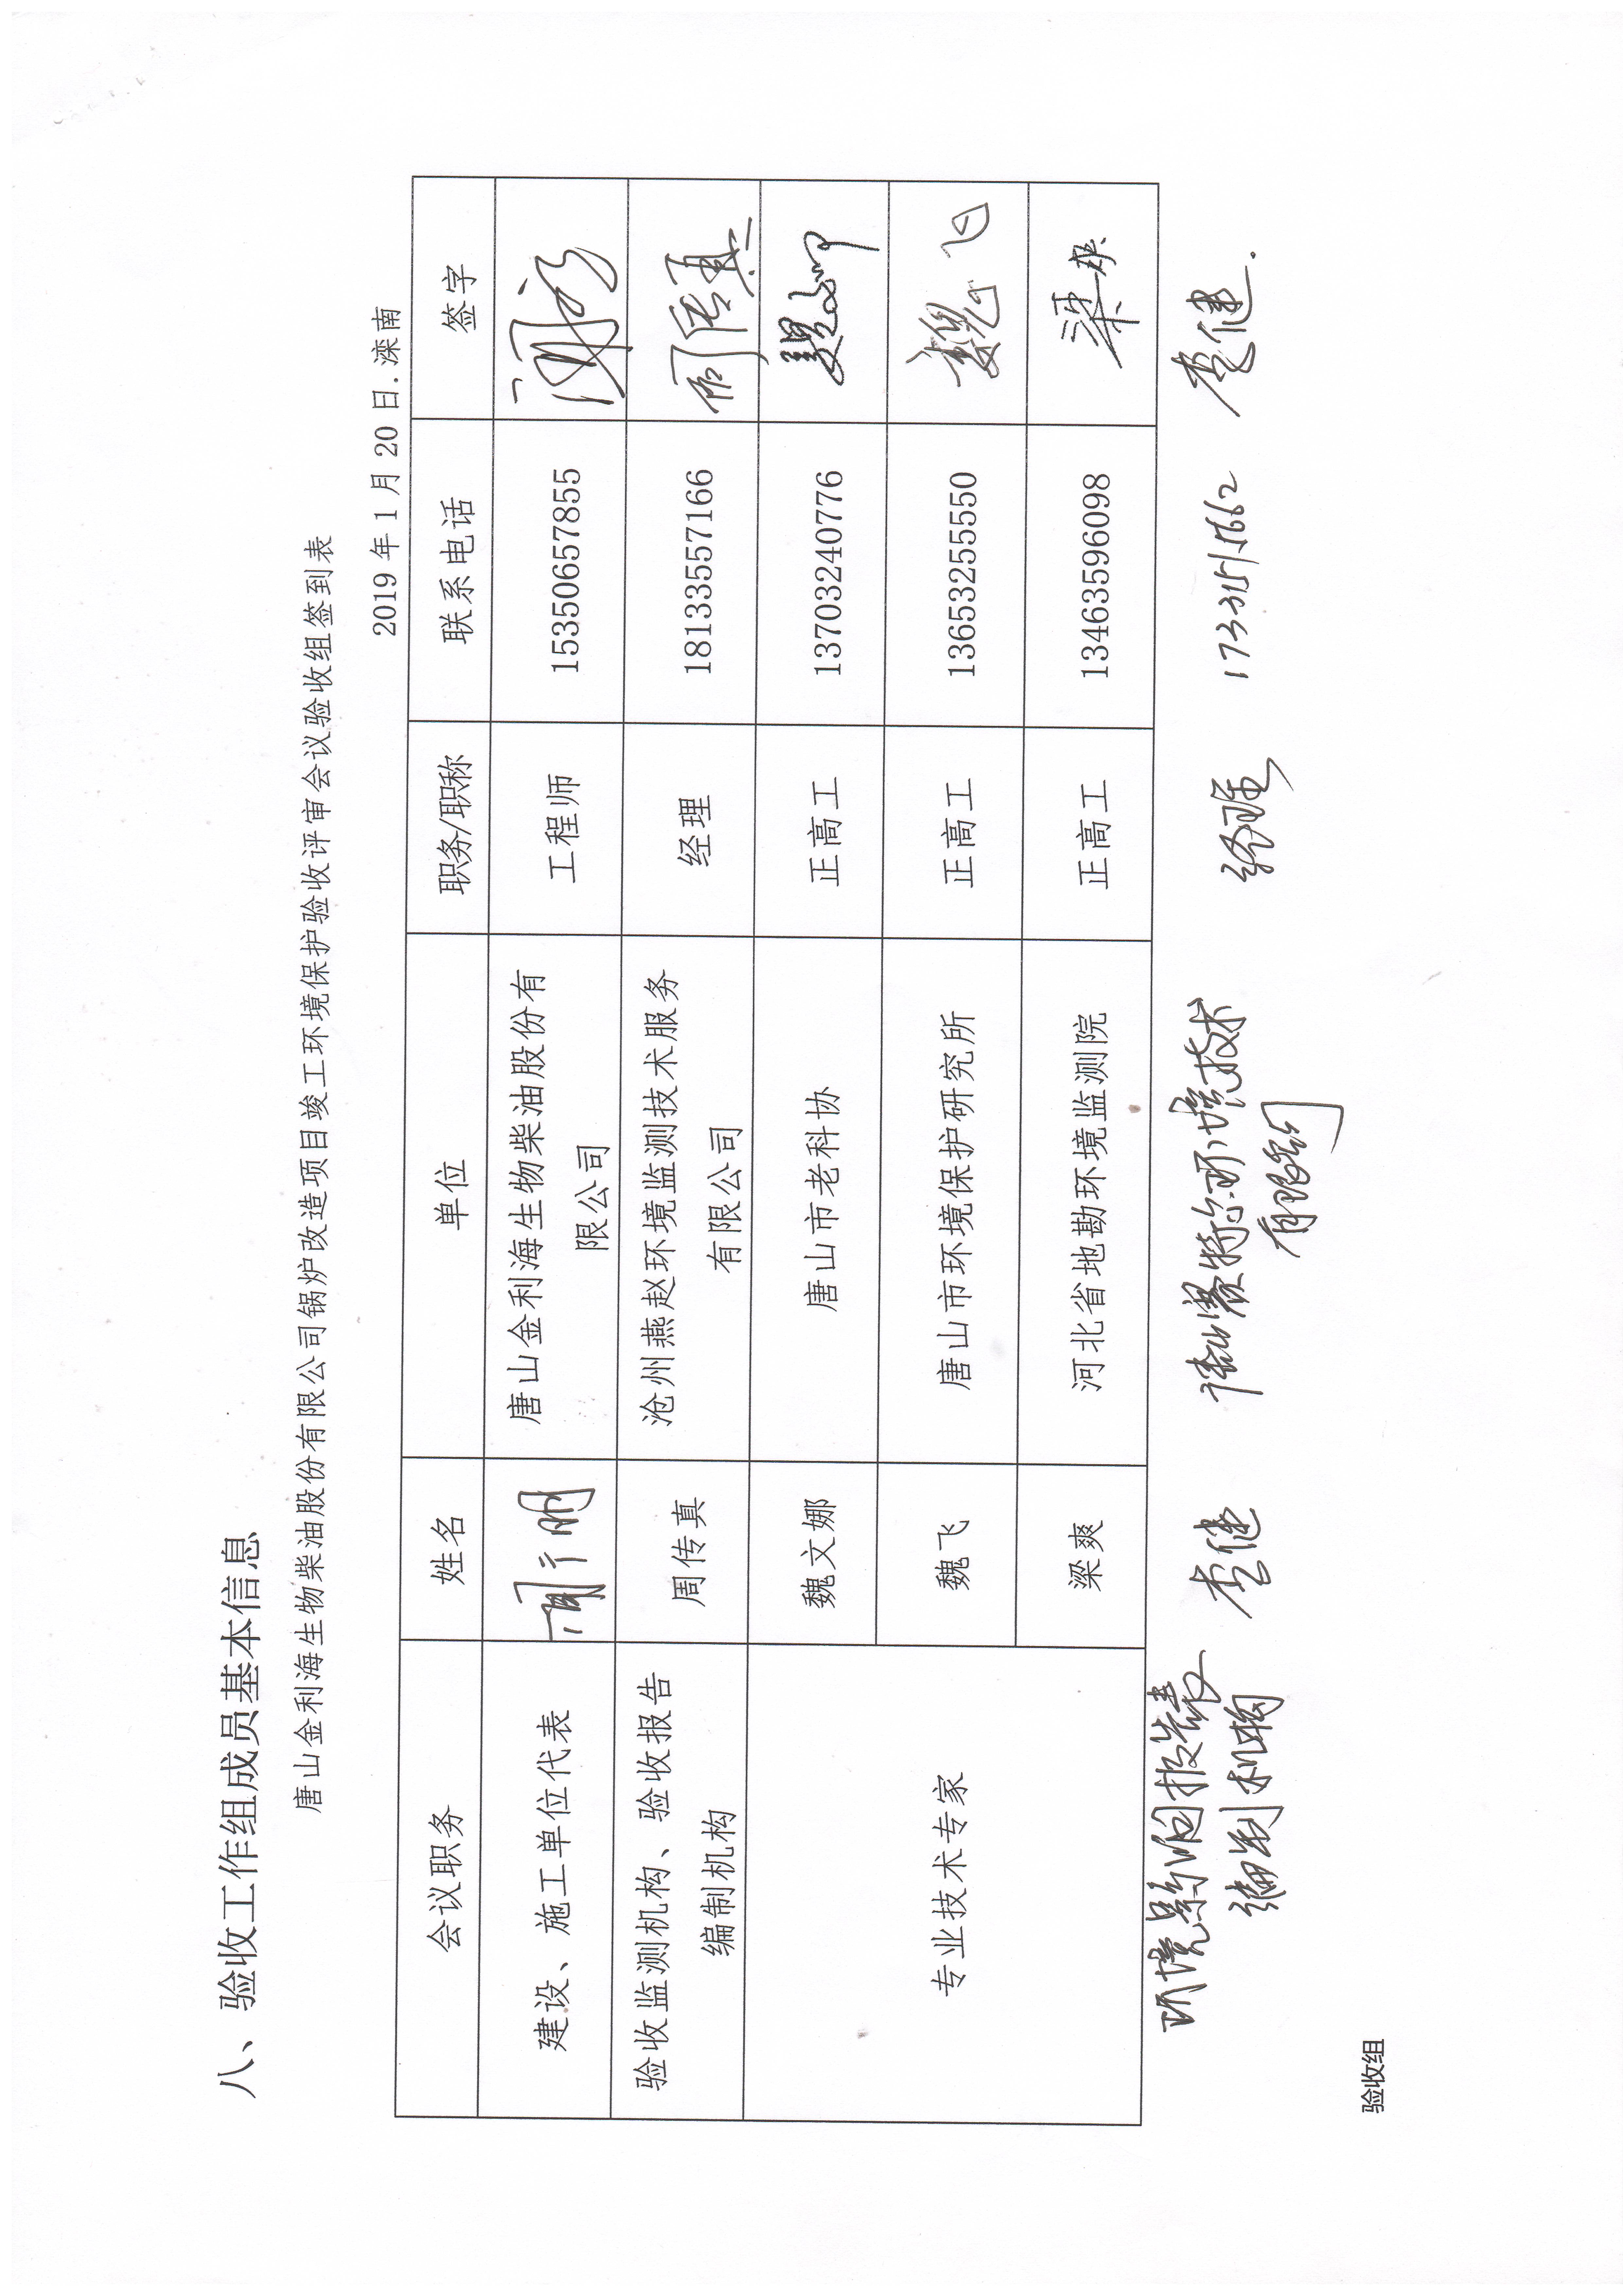 八、验收工作组成员基本信息
唐山金利海生物柴油股份有限公司锅炉改造项目竣工环境保护验收评审会议验收组签到表
2019 年 1 月 20 日.滦南
会议职务 姓名 单位 职务/职称 联系电话 签字
建设、施工单位代表 唐山金利海生物柴油股份有 工程师 15350657855
限公司
验收监测机构、验收报告 周传真 沧州燕赵环境监测技术服务 经理 18133557166 周传真
编制机构 有限公司
魏文娜 唐山市老科协 正高工 13703240776
专业技术专家 魏飞 唐山市环境保护研究所 正高工 13653255550 魏飞
梁爽 河北省地勘环境监测院 正高工 13463596098 梁爽
环境影响报告表 李健 环境技术 经理 李健.
编制机构 有限公司
验收组